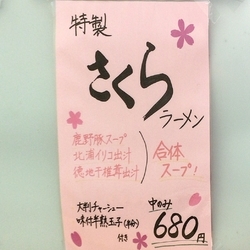 特製
さくら
ラーメン
鹿野豚スープ
北浦イリコ出汁
徳地干椎茸出汁
合体
スープ!
大判チャーシュー
味付半熟玉子(半分)
付き
中のみ
680円